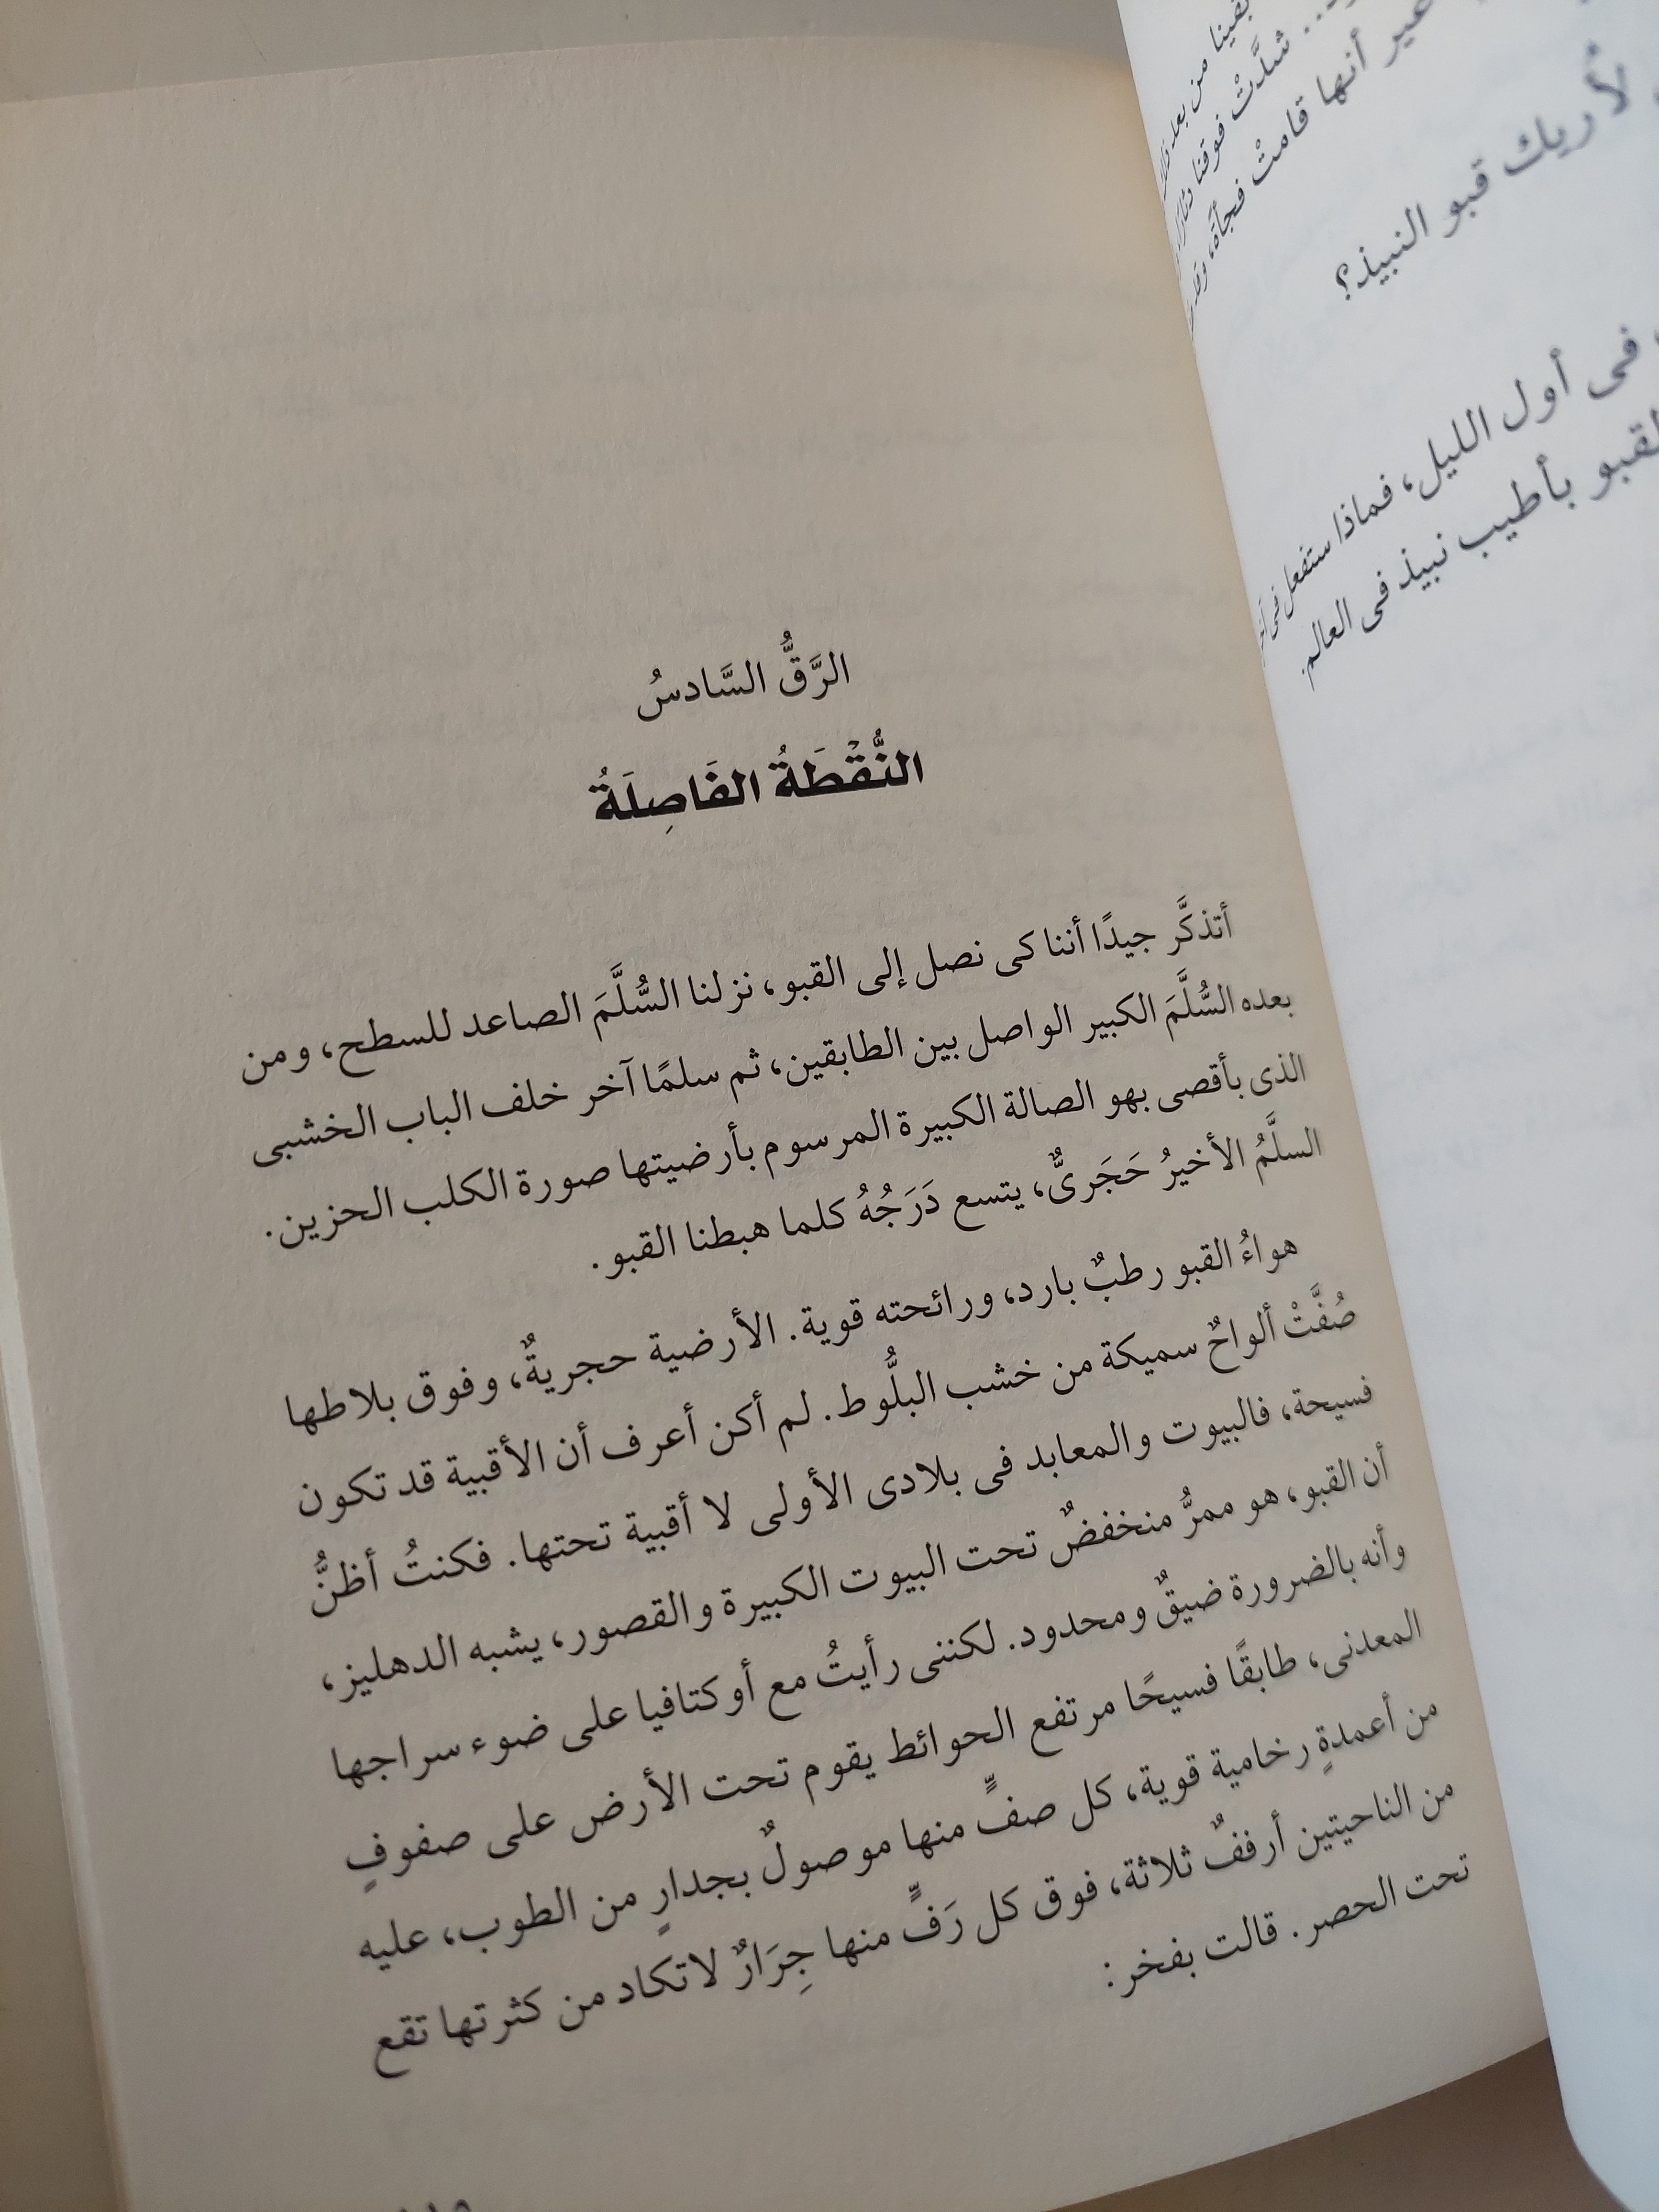 بقينا من بعد
شدَّتْ فوقنا دثار
غير أنها قامتْ فجأة، وقد
لأريك قبو النبيذ؟
فى أول الليل، فماذا ستفعل فى
لقبو بأطيب نبيذ فى العالم.
الرَّقُّ السَّادسُ
النُّقْطَةُ الفَاصِلَةُ
أتذكَّر جيدًا أننا كى نصل إلى القبو، نزلنا السُّلَّمَ الصاعد للسطح، ومن
بعده السُّلَّمَ الكبير الواصل بين الطابقين، ثم سلمًا آخر خلف الباب الخشبى
الذى بأقصى بهو الصالة الكبيرة المرسوم بأرضيتها صورة الكلب الحزين.
السلَّمُ الأخيرُ حَجَرىٌّ، يتسع دَرَجُهُ كلما هبطنا القبو.
هواءُ القبو رطبٌ بارد، ورائحته قوية. الأرضية حجريةٌ، وفوق بلاطها
صُفَّتْ ألواحٌ سميكة من خشب البلُّوط. لم أكن أعرف أن الأقبية قد تكون
فسيحة، فالبيوت والمعابد فى بلادى الأولى لا أقبية تحتها. فكنتُ أظنُّ
أن القبو، هو ممرٌّ منخفضٌ تحت البيوت الكبيرة والقصور، يشبه الدهليز،
وأنه بالضرورة ضيقٌ ومحدود. لكننى رأيتُ مع أوكتافيا على ضوء سراجها
المعدنى، طابقًا فسيحًا مرتفع الحوائط يقوم تحت الأرض على صفوفٍ
من أعمدةٍ رخامية قوية، كل صفٍّ منها موصولٌ بجدارٍ من الطوب، عليه
من الناحيتين أرففٌ ثلاثة، فوق كل رَفٍّ منها جِرَارٌ لاتكاد من كثرتها تقع
تحت الحصر. قالت بفخر: